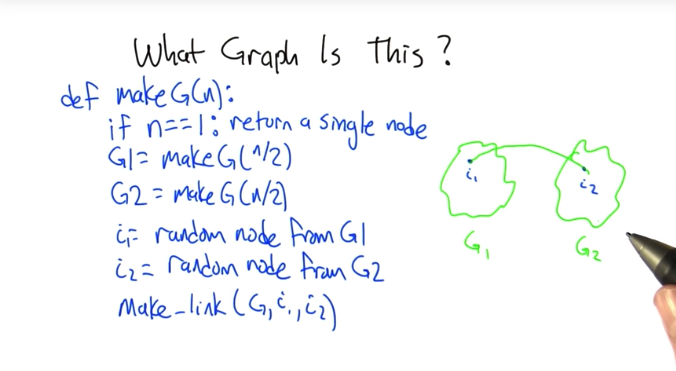 What Graph Is This?
def makeG(n):
if n==1: return a single node
G1= makeG(n/2)
G2= makeG(n/2)
i1= random node from G1
i2= random node from G2
make_link(G, i1, i2)
i1
i2
G1
G2